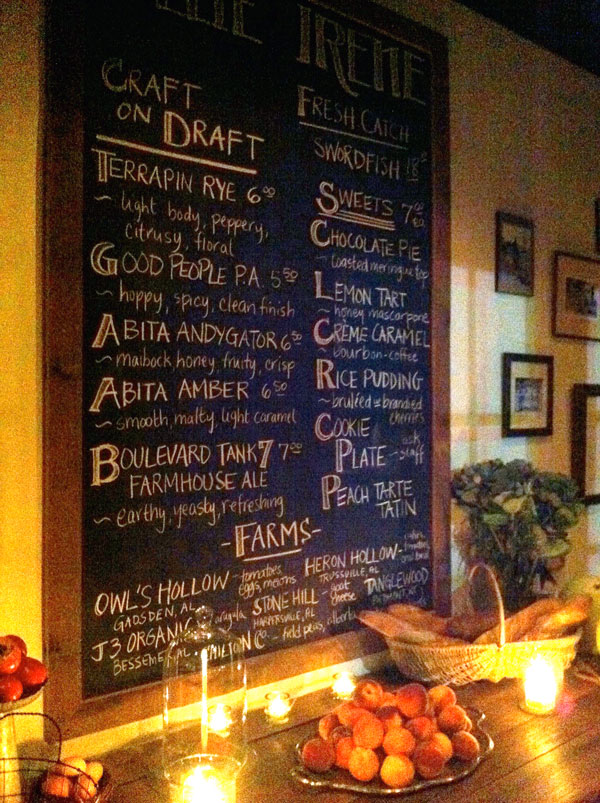 IRENE
CRAFT
ON DRAFT
TERRAPIN RYE 6⁰⁰
~ light body, peppery,
citrusy, floral
GOOD PEOPLE P.A. 5⁵⁰
~ hoppy, spicy, clean finish
ABITA ANDYGATOR 6⁵⁰
~ maibock honey, fruity, crisp
ABITA AMBER 6⁵⁰
~ smooth, malty, light caramel
BOULEVARD TANK 7 7⁰⁰
FARMHOUSE ALE
~ earthy, yeasty, refreshing
FRESH CATCH
SWORDFISH 18
SWEETS 7⁰⁰ ea.
CHOCOLATE PIE
~ toasted meringue top
LEMON TART
~ honey mascarpone
CRÈME CARAMEL
~ bourbon-coffee
RICE PUDDING
~ bruléed w brandied
cherries
COOKIE
PLATE ~ ask staff
PEACH TARTE
TATIN
- FARMS -
OWL'S HOLLOW - tomatoes, eggs, melons
GADSDEN, AL
J3 ORGANIC arugula
BESSEMER, AL
HERON HOLLOW -
TRUSSVILLE, AL
STONE HILL - goat cheese
HARPERSVILLE, AL
TANGLEWOOD
HAMILTON CO. - field peas,